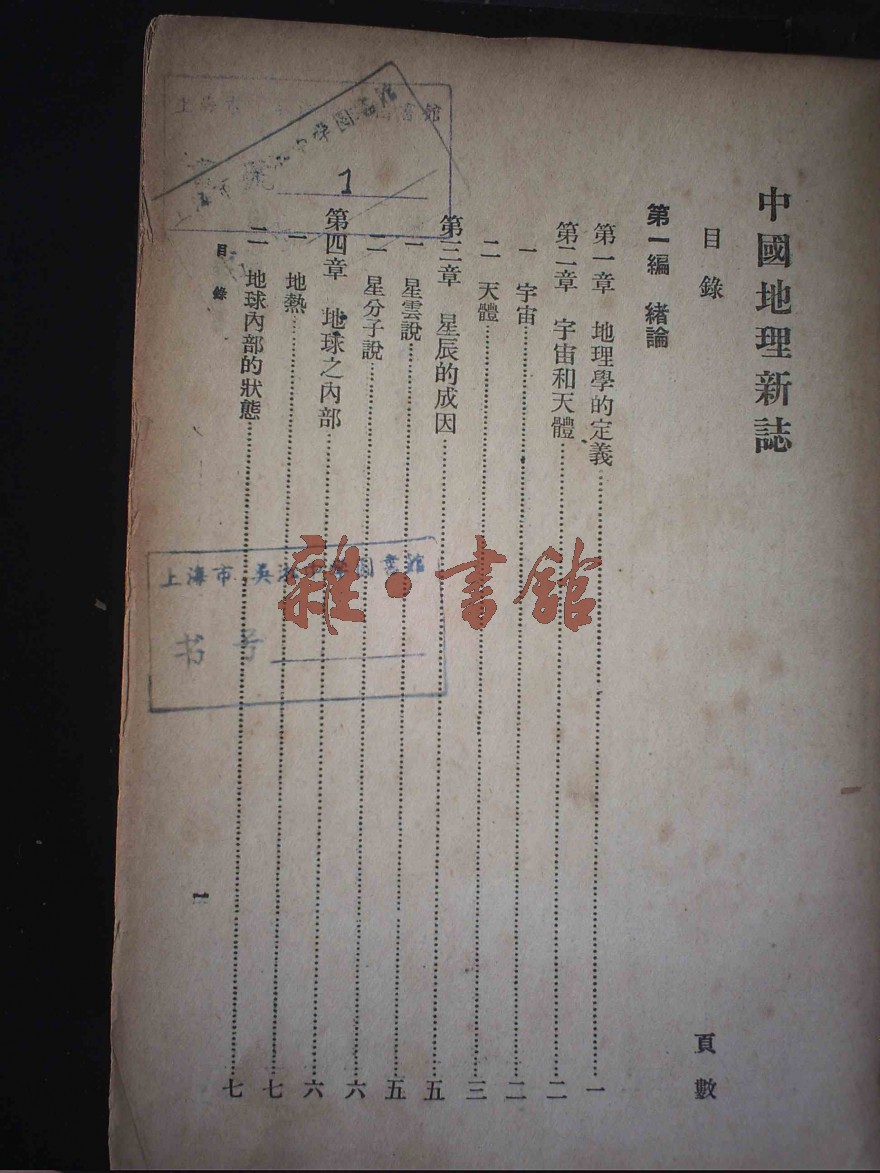 中國地理新誌
目錄
頁數
第一編 緒論
第一章 地理學的定義……一
第二章 宇宙和天體……二
一 宇宙……二
二 天體……三
第三章 星辰的成因……五
一 星雲說……五
二 星分子說……六
第四章 地球之內部……六
一 地熱……七
二 地球內部的狀態……七
目錄
一
1
上海市
書館
中學圖
上海市吳淞中學圖書館
书号
雜·書館